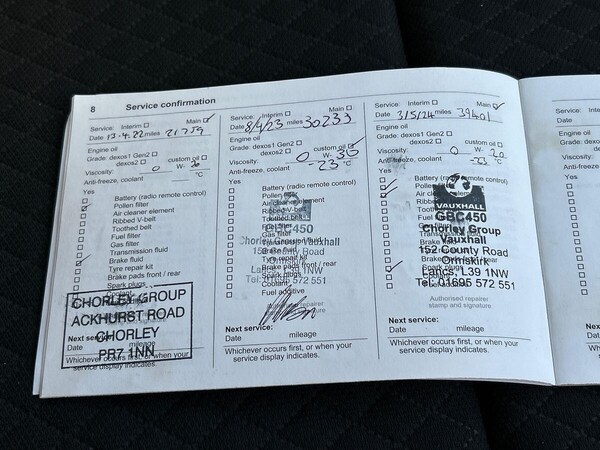 8
Service confirmation
Service: Interim Main
Date 13.4.22 miles 21759
Engine oil
Grade: dexos1 Gen2
dexos2 custom oil
Viscosity: 0 W-
Anti-freeze, coolant °C
Yes
Battery (radio remote control)
Pollen filter
Air cleaner element
Ribbed V-belt
Toothed belt
Fuel filter
Gas filter
Transmission fluid
Brake fluid
Tyre repair kit
Brake pads front / rear
Spark plugs
CHORLEY GROUP
ACKHURST ROAD
CHORLEY
PR7 1NN
Next service:
Date mileage
Whichever occurs first, or when your
service display indicates.
Service: Interim Main
Date 8/4/23 miles 30233
Engine oil
Grade: dexos1 Gen2
dexos2 custom oil
Viscosity: 0 W- 30
Anti-freeze, coolant -23 °C
Yes
Battery (radio remote control)
Pollen filter
Air cleaner element
Ribbed V-belt
Toothed belt
Fuel filter
Gas filter
Transmission fluid
Brake fluid
Tyre repair kit
Brake pads front / rear
Spark plugs
Coolant
Fuel additive
Chorley Group Vauxhall
152 County Road
Ormskirk
Lancs, L39 1NW
Tel: 01695 572 551
Next service:
Date mileage
Whichever occurs first, or when your
service display indicates.
Service: Interim Main
Date 3/5/24 miles 39401
Engine oil
Grade: dexos1 Gen2
dexos2 custom oil
Viscosity: 0 W- 20
Anti-freeze, coolant -33 °C
Yes
Battery (radio remote control)
VAUXHALL
GBC450
Chorley Group
Vauxhall
152 County Road
Ormskirk
Lancs, L39 1NW
Tel: 01695 572 551
Authorised repairer
stamp and signature
Next service:
Date mileage
Whichever occurs first, or when your
service display indicates.